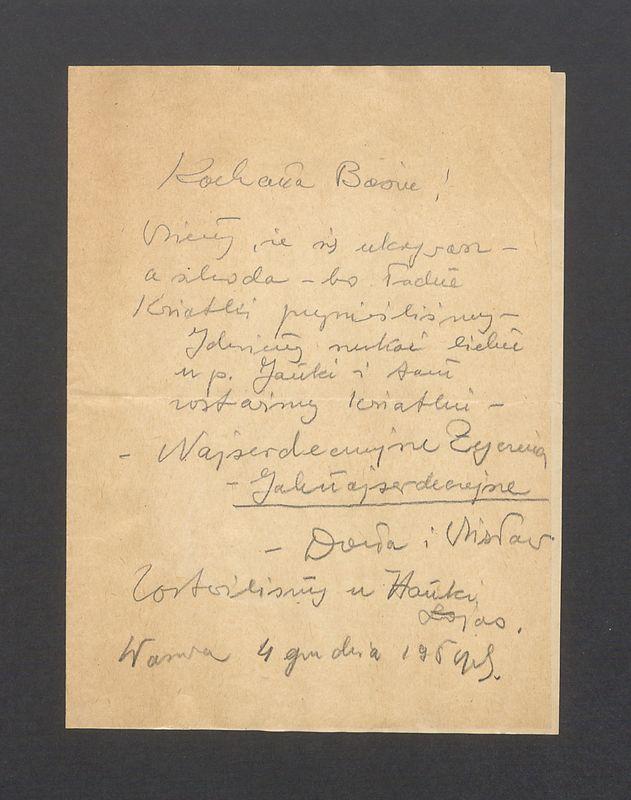 Kochana Basiu!
Wiemy, że się ukrywasz –
a szkoda – bo ładne
Kwiatki przynieśliśmy –
Idziemy szukać Ciebie
u p. Hanki i tam
zostawimy kwiatki –
– Najserdeczniejsze Życzenia
– Jaknajserdeczniejsze
– Donia i Wisław
Zostawiliśmy u Hanki
Łojas.
Warszawa 4 grudnia